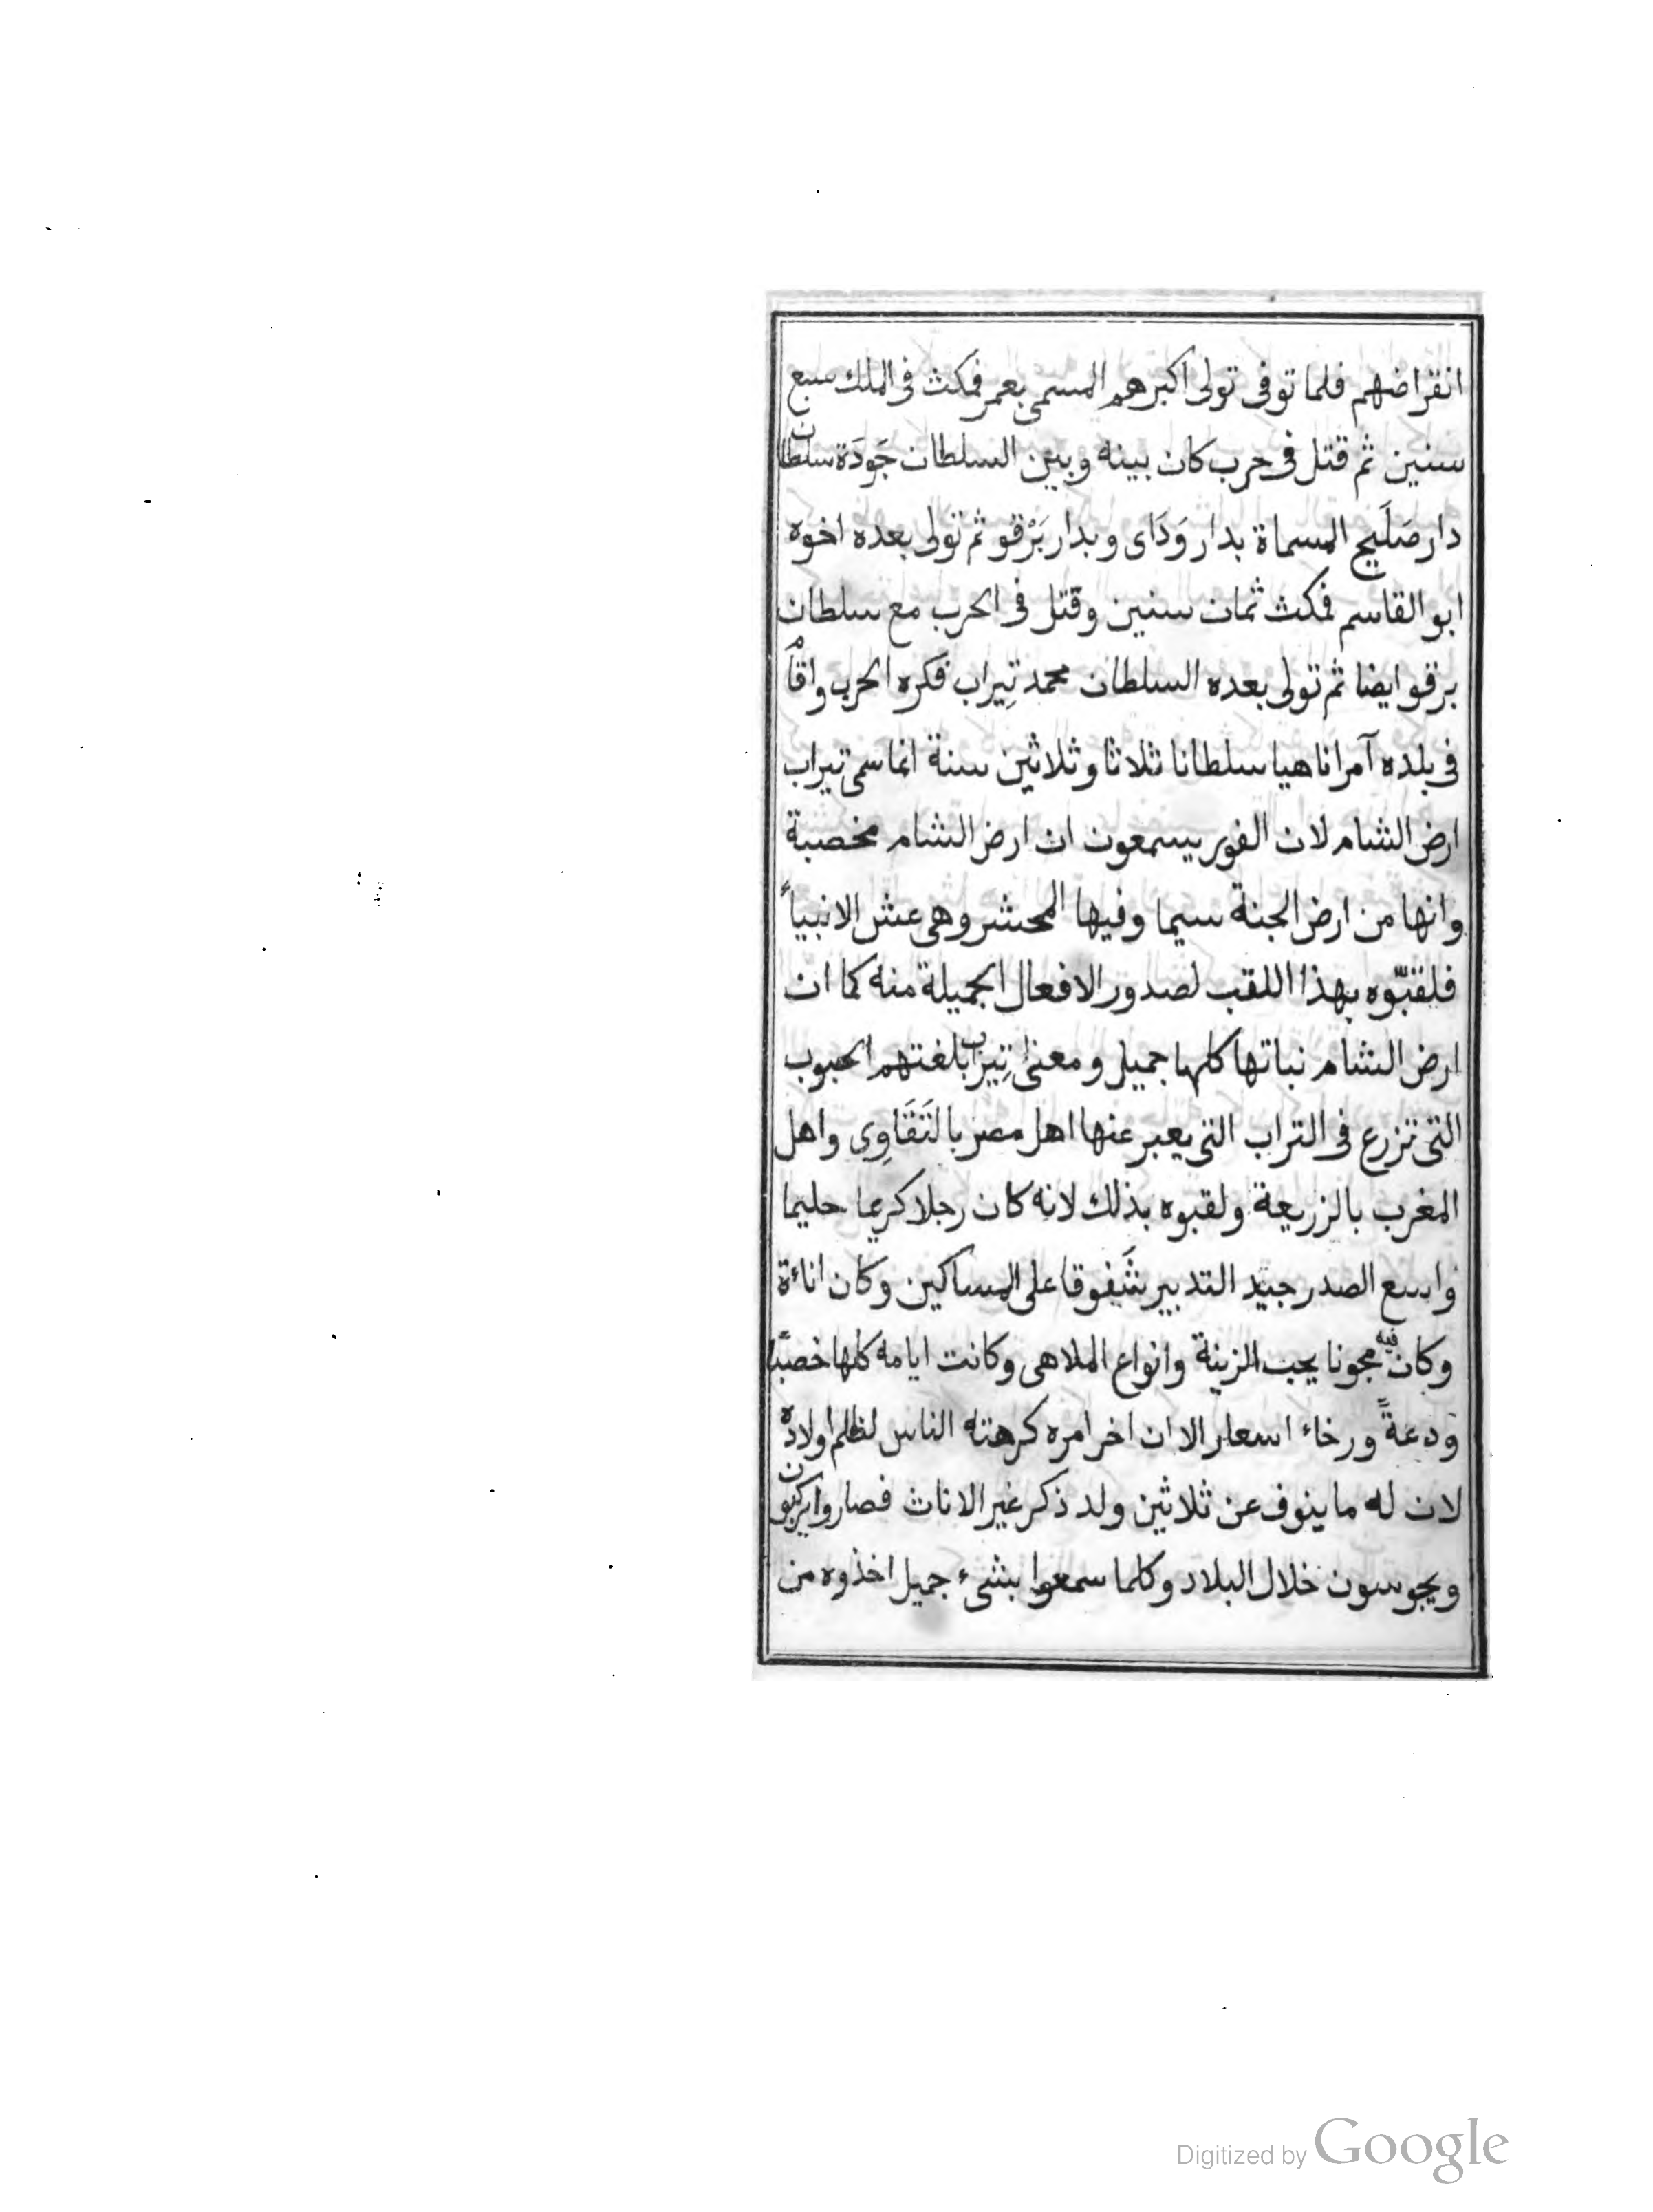 انقراضهم فلما توفى تولى اكبرهم المسمى بعمر فمكث فى الملك سبع
سنين ثم قتل فى حرب كان بينه وبين السلطان جَودَة سلطان
دار صَلَيح المسماة بدار وَدَاى وبدار بَرْقو ثم تولى بعده اخوه
ابو القاسم فمكث ثمان سنين وقتل فى الحرب مع سلطان
برقو ايضا ثم تولى بعده السلطان محمد تِيراب فكره الحرب واقام
فى بلده آمرا ناهيا سلطانا ثلاثا وثلاثين سنة انما سمى تيراب
ارض الشام لان الفور يسمعون ان ارض الشام مخصبة
وانها من ارض الجنة سيما وفيها المحشر وهى عش الانبياء
فلقبّوه بهذا اللقب لصدور الافعال الجميلة منه كما ان
ارض الشام نباتها كلها جميل ومعنى تِيراب بلغتهم الحبوب
التى تزرع فى التراب التى يعبر عنها اهل مصر بالتَقَاوِى واهل
المغرب بالزريعة ولقبوه بذلك لانه كان رجلا كريما حليما
واسع الصدر جيد التدبير شَفوقا على المساكين وكان اناءة
وكان فيه مجونا يحب الزينة وانواع الملاهى وكانت ايامه كلها خصبًا
ودعةً ورخاء اسعار الا ان اخر امره كرهته الناس لظلم اولاده
لان له ما ينوف عن ثلاثين ولد ذكر غير الاناث فصاروا يركبون
ويجوسون خلال البلاد وكلما سمعوا بشىء جميل اخذوه من
Digitized by Google